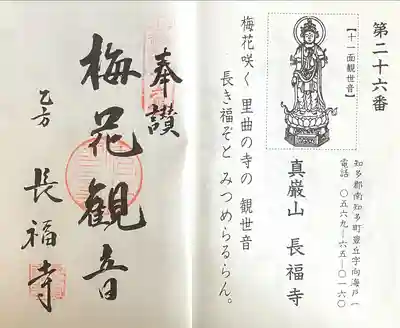 第二十六番
【十一面観世音】
知多郡南知多町豊丘字向海戸一
電話 〇五六九ー六五ー〇一六〇
真巌山 長福寺
梅花咲く 里曲の寺の 観世音
長き福ぞと みつめらるらん。
奉讃
梅花観音
乙方 長福寺